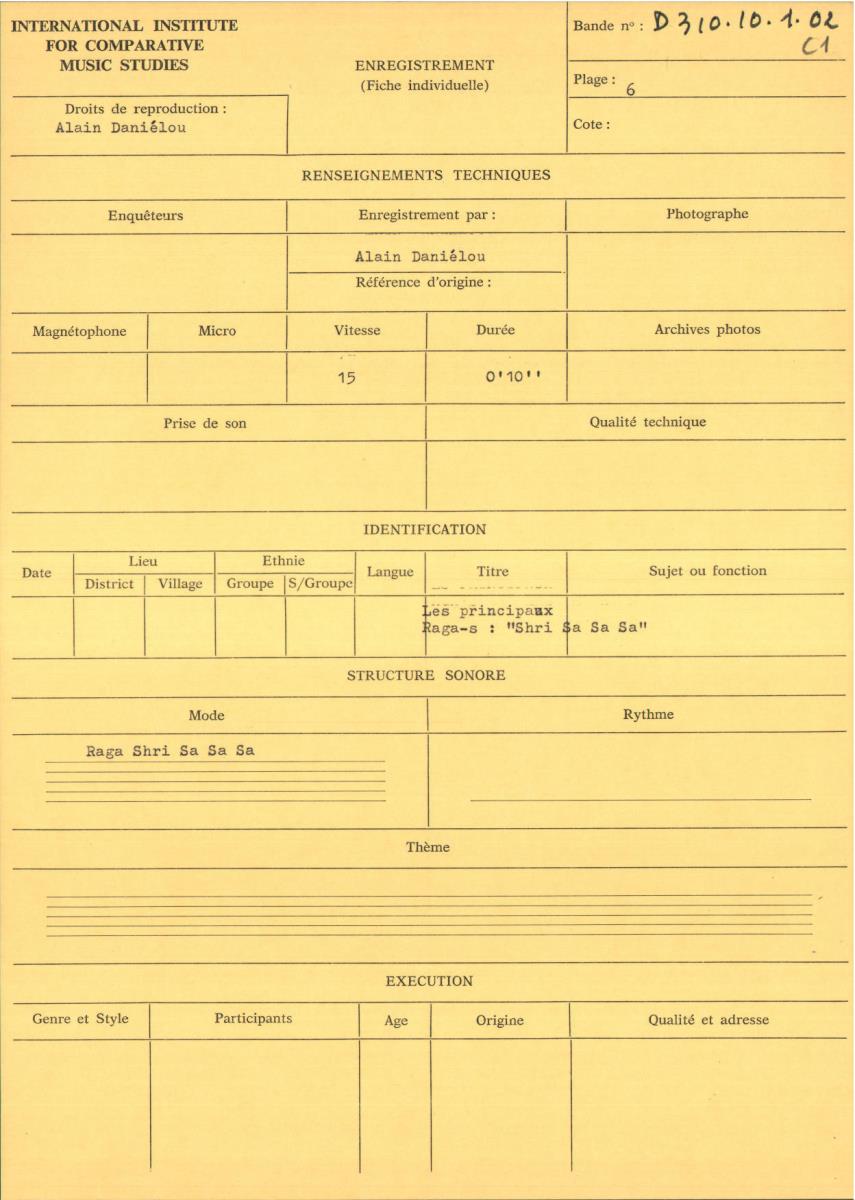 INTERNATIONAL INSTITUTE
FOR COMPARATIVE
MUSIC STUDIES
Droits de reproduction :
Alain Daniélou
ENREGISTREMENT
(Fiche individuelle)
Bande nº : D 310.10.1.02
C1
Plage : 6
Cote :
RENSEIGNEMENTS TECHNIQUES
Enquêteurs
Enregistrement par :
Photographe
Alain Daniélou
Référence d'origine :
Magnétophone
Micro
Vitesse
Durée
Archives photos
15
0'10''
Prise de son
Qualité technique
IDENTIFICATION
Date
Lieu
District
Village
Ethnie
Groupe
S/Groupe
Langue
Titre
Sujet ou fonction
Les principaux
Raga-s : "Shri Sa Sa Sa"
STRUCTURE SONORE
Mode
Rythme
Raga Shri Sa Sa Sa
Thème
EXECUTION
Genre et Style
Participants
Age
Origine
Qualité et adresse